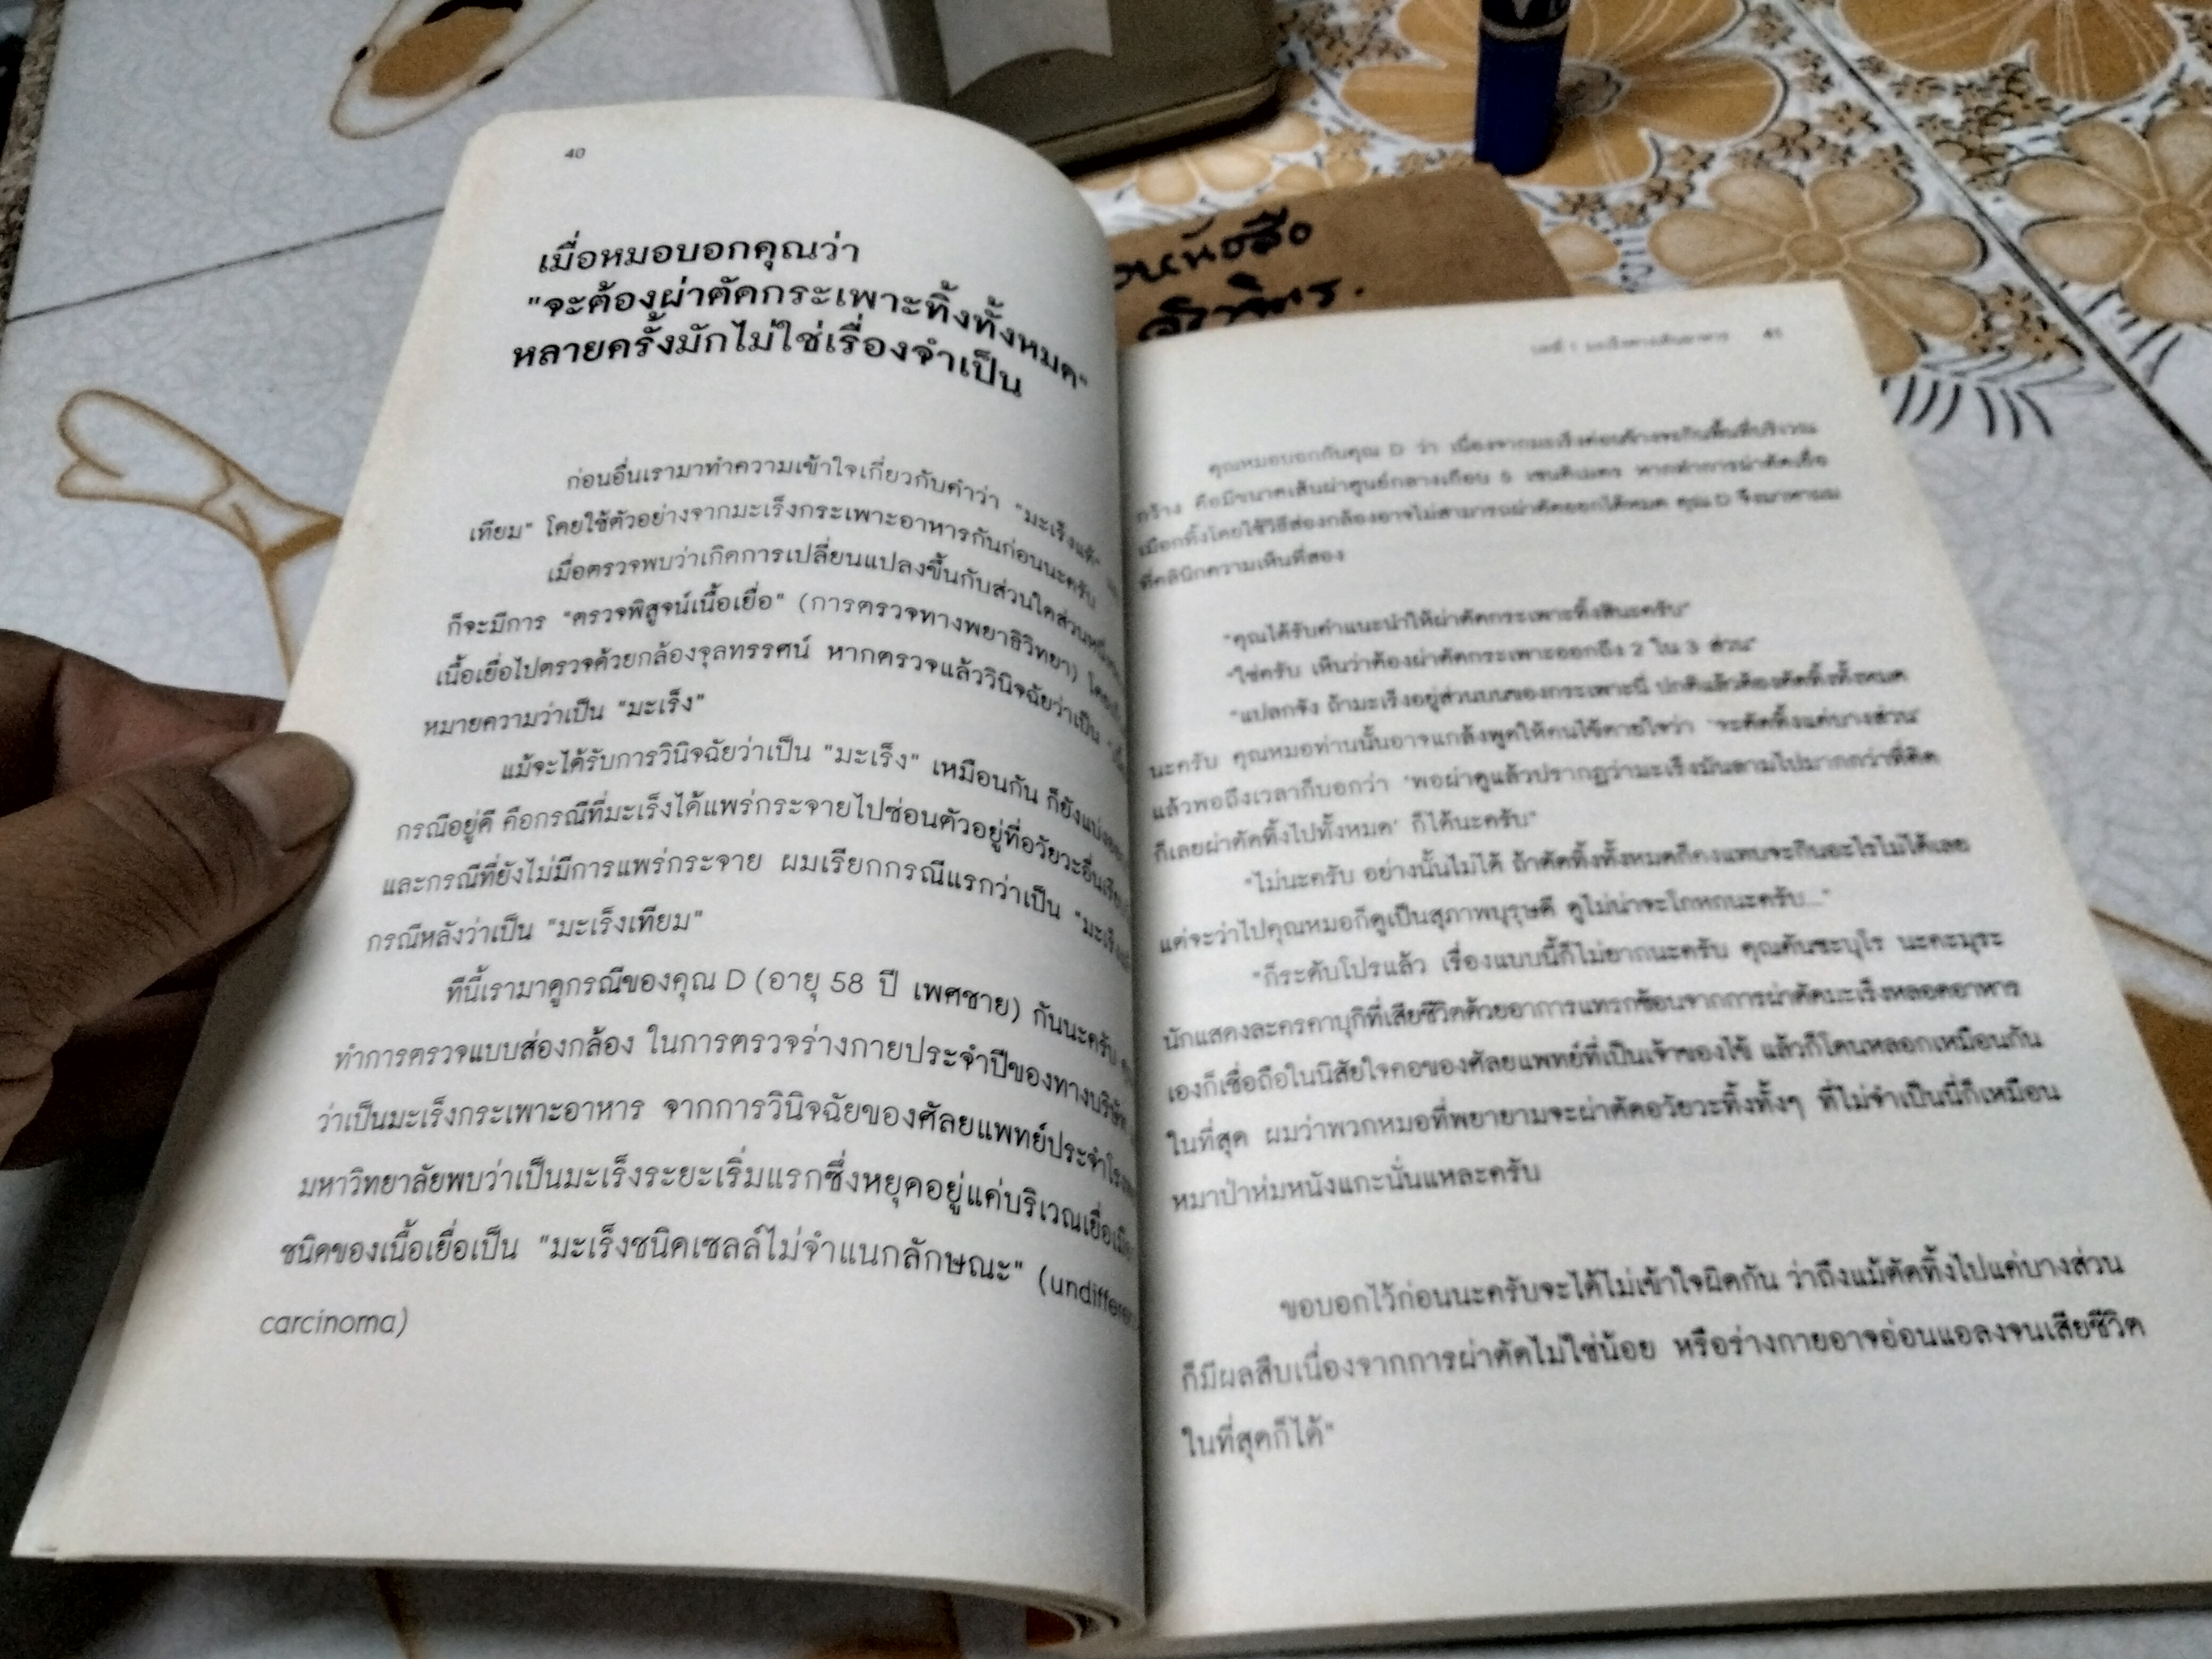 40
เมื่อหมอบอกคุณว่า
"จะต้องผ่าตัดกระเพาะทิ้งทั้งหมด"
หลายครั้งมักไม่ใช่เรื่องจำเป็น
ก่อนอื่นเรามาทำความเข้าใจเกี่ยวกับคำว่า "มะเร็งแท้"
เทียม" โดยใช้ตัวอย่างจากมะเร็งกระเพาะอาหารกันก่อนนะครับ
เมื่อตรวจพบว่าเกิดการเปลี่ยนแปลงขึ้นกับส่วนใดส่วนหนึ่ง
ก็จะมีการ "ตรวจพิสูจน์เนื้อเยื่อ" (การตรวจทางพยาธิวิทยา)
เนื้อเยื่อไปตรวจด้วยกล้องจุลทรรศน์ หากตรวจแล้ววินิจฉัยว่าเป็น
หมายความว่าเป็น "มะเร็ง"
แม้จะได้รับการวินิจฉัยว่าเป็น "มะเร็ง" เหมือนกัน ก็ยังแบ่ง
กรณีอยู่ดี คือกรณีที่มะเร็งได้แพร่กระจายไปซ่อนตัวอยู่ที่อวัยวะอื่น
และกรณีที่ยังไม่มีการแพร่กระจาย ผมเรียกกรณีแรกว่าเป็น
กรณีหลังว่าเป็น "มะเร็งเทียม"
ทีนี้เรามาดูกรณีของคุณ D (อายุ 58 ปี เพศชาย) กันนะครับ
ทำการตรวจแบบส่องกล้อง ในการตรวจร่างกายประจำปีของทางบริษัท
ว่าเป็นมะเร็งกระเพาะอาหาร จากการวินิจฉัยของศัลยแพทย์ประจำ
มหาวิทยาลัยพบว่าเป็นมะเร็งระยะเริ่มแรกซึ่งหยุดอยู่แค่บริเวณ
ชนิดของเนื้อเยื่อเป็น "มะเร็งชนิดเซลล์ไม่จำแนกลักษณะ"
carcinoma)
บทที่ 1 มะเร็งทางเดินอาหาร 41
คุณหมอบอกกับคุณ D ว่า เนื่องจากมะเร็งค่อนข้างจะกินพื้นที่บริเวณ
กว้าง คือมีขนาดเส้นผ่าศูนย์กลางเกือบ 5 เซนติเมตร หากทำการผ่าตัดเยื่อ
เมือกทิ้งโดยใช้วิธีส่องกล้องอาจไม่สามารถผ่าตัดออกได้หมด คุณ D จึงมาหาผม
ที่คลินิกความเห็นที่สอง
"คุณได้รับคำแนะนำให้ผ่าตัดกระเพาะทิ้งสินะครับ"
"ใช่ครับ เห็นว่าต้องผ่าตัดกระเพาะออกถึง 2 ใน 3 ส่วน"
"แปลกจัง ถ้ามะเร็งอยู่ส่วนบนของกระเพาะนี่ ปกติแล้วต้องตัดทิ้งทั้งหมด
นะครับ คุณหมอท่านนั้นอาจแกล้งพูดให้คนไข้ตายใจว่า 'จะตัดทิ้งแค่บางส่วน'
แล้วพอถึงเวลาก็บอกว่า 'พอผ่าดูแล้วปรากฏว่ามะเร็งมันลามไปมากกว่าที่คิด
ก็เลยผ่าตัดทิ้งไปทั้งหมด' ก็ได้นะครับ"
"ไม่นะครับ อย่างนั้นไม่ได้ ถ้าตัดทิ้งทั้งหมดก็คงแทบจะกินอะไรไม่ได้เลย
แต่จะว่าไปคุณหมอก็ดูเป็นสุภาพบุรุษดี ดูไม่น่าจะโกหกนะครับ..."
"ก็ระดับโปรแล้ว เรื่องแบบนี้ก็ไม่ยากนะครับ คุณคันซะบุโร นะคะมุระ
นักแสดงละครคาบุกิที่เสียชีวิตด้วยอาการแทรกซ้อนจากการผ่าตัดมะเร็งหลอดอาหาร
เองก็เชื่อถือในนิสัยใจคอของศัลยแพทย์ที่เป็นเจ้าของไข้ แล้วก็โดนหลอกเหมือนกัน
ในที่สุด ผมว่าพวกหมอที่พยายามจะผ่าตัดอวัยวะทิ้งทั้งๆ ที่ไม่จำเป็นนี่ก็เหมือน
หมาป่าห่มหนังแกะนั่นแหละครับ
ขอบอกไว้ก่อนนะครับจะได้ไม่เข้าใจผิดกัน ว่าถึงแม้ตัดทิ้งไปแค่บางส่วน
ก็มีผลสืบเนื่องจากการผ่าตัดไม่ใช่น้อย หรือร่างกายอาจอ่อนแอลงจนเสียชีวิต
ในที่สุดก็ได้"